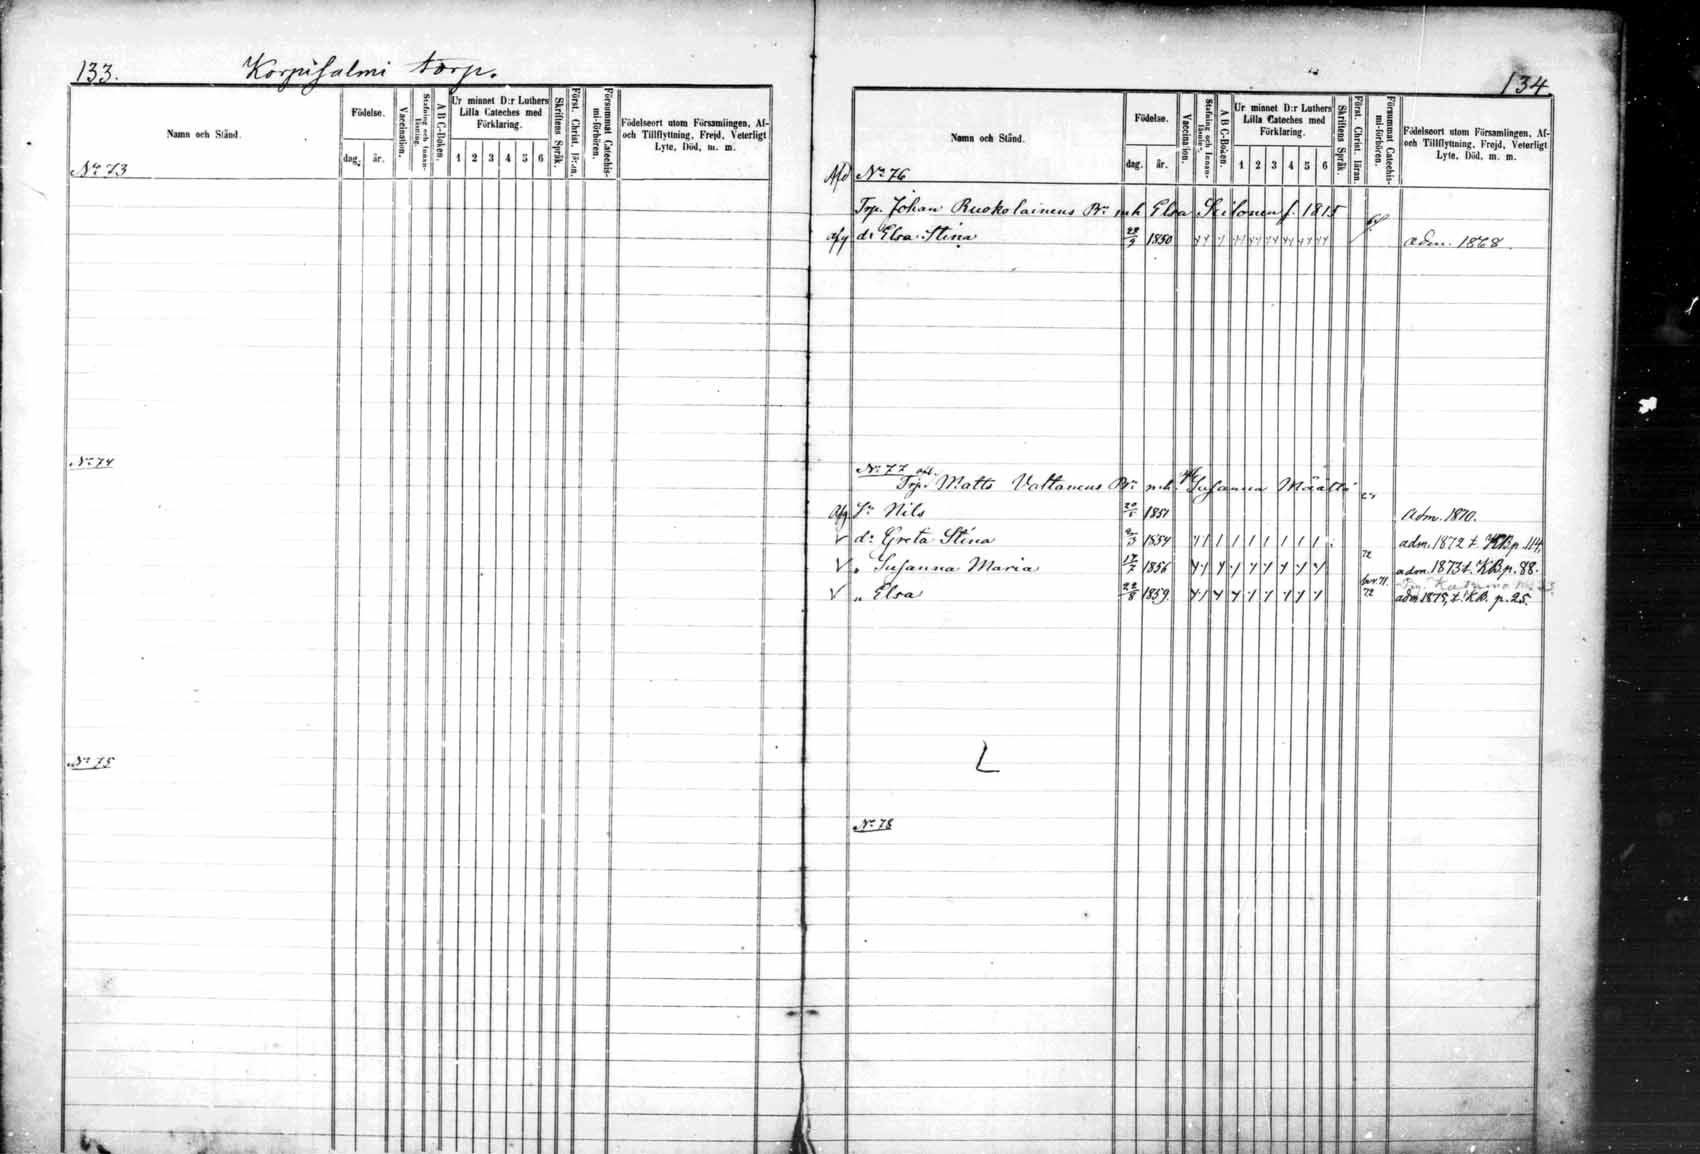 133.
Korpisalmi torp.
Namn och Stånd.
Födelse.
dag.
år.
Vaccination.
Stafning och Innanläsning.
A B C-Boken.
Ur minnet D:r Luthers Lilla Cateches med Förklaring.
1 2 3 4 5 6
Skriftens Språk.
Först. Christ. läran.
Försummat Catechismi-förhören.
Födelseort utom Församlingen, Af- och Tillflyttning, Frejd, Veterligt Lyte, Död, m. m.
No 73
No 74
No 75
134.
Namn och Stånd.
Födelse.
dag.
år.
Vaccination.
Stafning och Innanläsning.
A B C-Boken.
Ur minnet D:r Luthers Lilla Cateches med Förklaring.
1 2 3 4 5 6
Skriftens Språk.
Först. Christ. läran.
Försummat Catechismi-förhören.
Födelseort utom Församlingen, Af- och Tillflyttning, Frejd, Veterligt Lyte, Död, m. m.
No 76
Trp. Johan Ruokolainens Br. m.h. Elsa Seilonen f. 1815
afg dr Elsa Stina 28/9 1850 adm. 1868.
No 77
Trp. Matts Vattanens Br. m.h. Susanna Määttä
Afg Sn Nils 20/5 1851 Adm. 1870.
v dr Greta Stina 9/3 1854 adm. 1872 t. KB p. 114.
v " Susanna Maria 17/7 1856 72 adm. 1873 t. KB p. 88.
v " Elsa 22/8 1859 72 adm 1875, t. KB. p. 25.
No 78